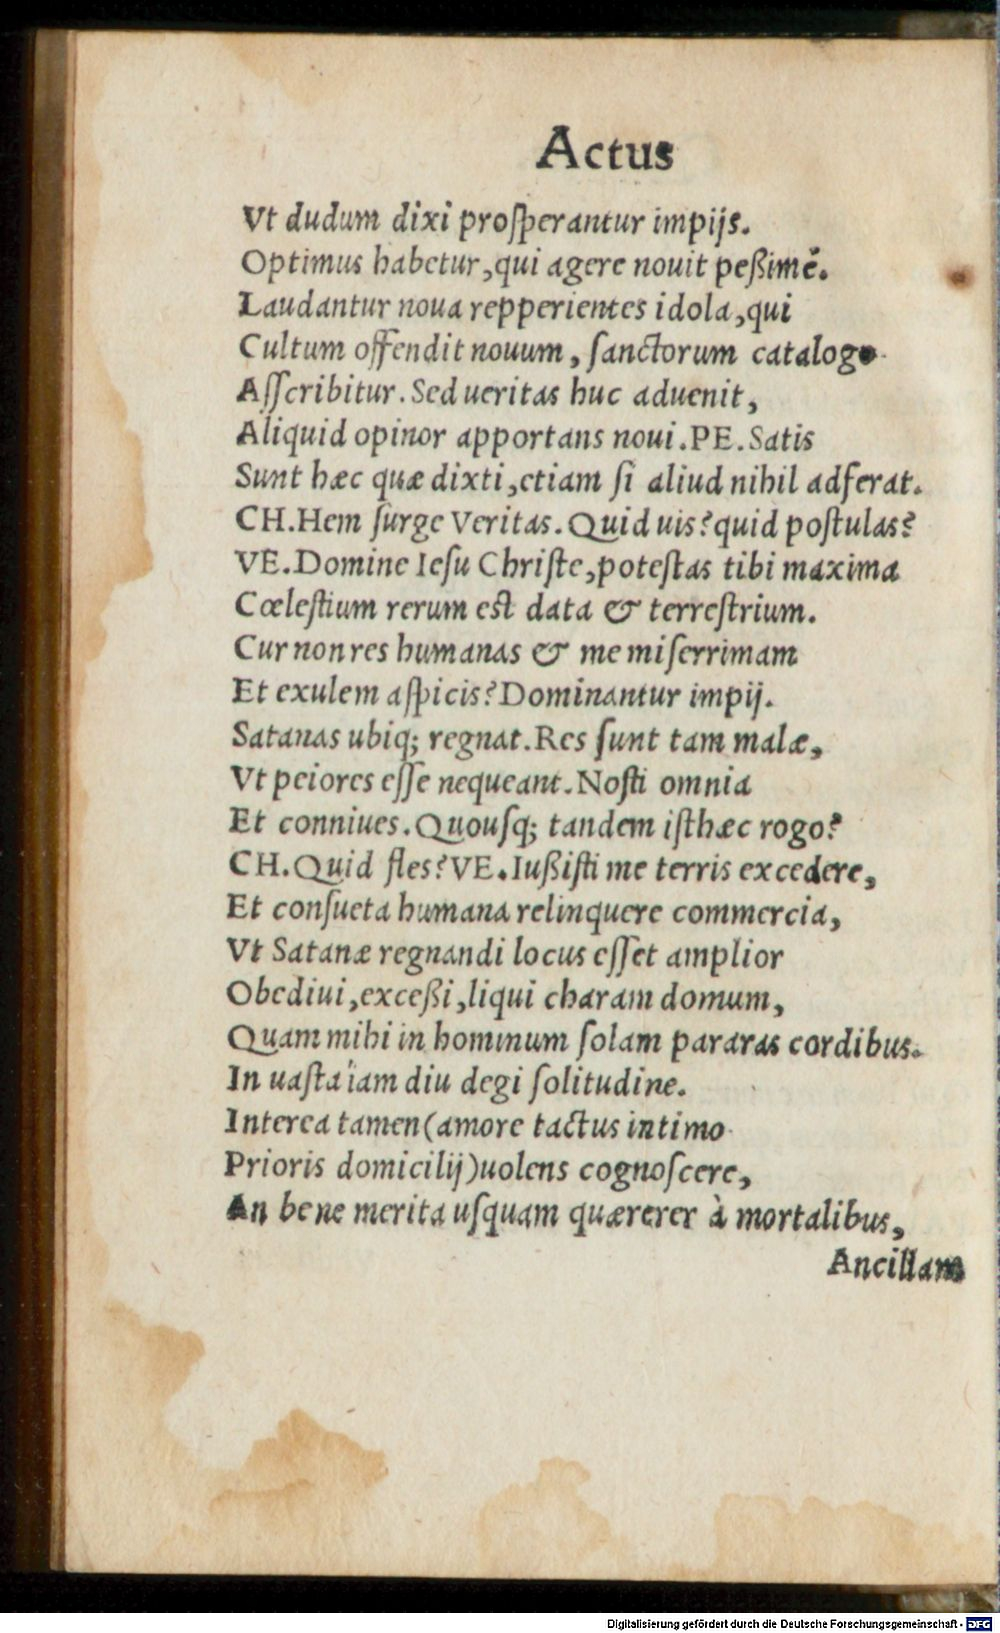 Actus
Vt dudum dixi proſperantur impijs.
Optimus habetur,qui agere nouit peßimè.
Laudantur noua repperientes idola,qui
Cultum offendit nouum, ſanctorum catalogo
Aſſcribitur. Sed ueritas huc aduenit,
Aliquid opinor apportans noui. PE. Satis
Sunt hæc quæ dixti,etiam ſi aliud nihil adferat.
CH. Hem ſurge Veritas. Quid uis? quid poſtulas?
VE. Domine Ieſu Chriſte,poteſtas tibi maxima
Cœleſtium rerum est data & terreſtrium.
Cur non res humanas & me miſerrimam
Et exulem aſpicis? Dominantur impij.
Satanas ubiq; regnat. Res ſunt tam malæ,
Vt peiores eſſe nequeant. Noſti omnia
Et conniues. Quouſq; tandem iſthæc rogo?
CH. Quid fles? VE. Iußiſti me terris excedere,
Et conſueta humana relinquere commercia,
Vt Satanæ regnandi locus eſſet amplior
Obediui,exceßi,liqui charam domum,
Quam mihi in hominum ſolam pararas cordibus.
In uaſta iam diu degi ſolitudine.
Interea tamen (amore tactus intimo
Prioris domicilij) uolens cognoſcere,
An bene merita uſquam quærerer à mortalibus,
Ancillam
Digitalisierung gefördert durch die Deutsche Forschungsgemeinschaft - DFG